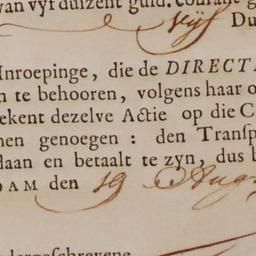 van vyf duizent guld. courant g
vyf Du
Inroepinge, die de DIRECT
n te behooren, volgens haar o
ekent dezelve Actie op die C
nen genoegen: den Transp
daan en betaalt te zyn, dus b
DAM den 19 Aug
dergeschrevene